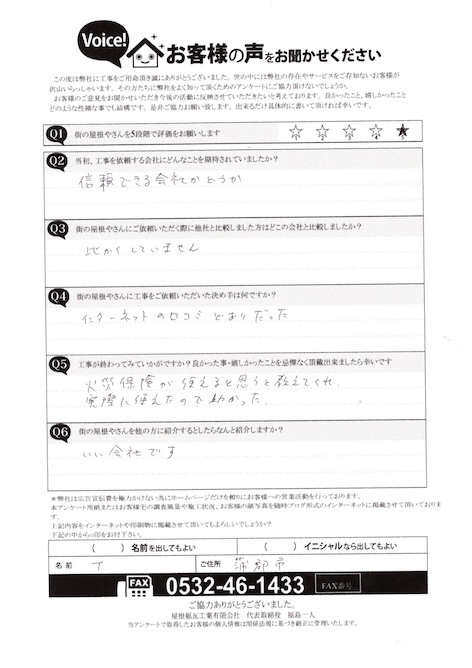 Voice!
お客様の声をお聞かせください
この度は弊社に工事をご用命頂き誠にありがとうございました。世の中には弊社の存在やサービスをご存知ないお客様が
沢山いらっしゃいます。その方たちに弊社をよく知って頂くためのアンケートにご協力頂けないでしょうか。
お客様のご意見をお聞かせいただき今後の活動に反映させていただきたいと考えております。良かったこと、嬉しかったこと
どのような些細な事でも結構です。是非ご協力お願い致します。出来るだけ具体的に書いて頂ければ幸いです。
Q1 街の屋根やさんを5段階で評価をお願いします ☆ ☆ ☆ ☆ ★
Q2 当初、工事を依頼する会社にどんなことを期待されていましたか?
信頼できる会社かどうか
Q3 街の屋根やさんにご依頼いただく際に他社と比較しました方はどこの会社と比較しましたか?
比かくしていません
Q4 街の屋根やさんに工事をご依頼いただいた決め手は何ですか?
インターネットの口コミどおりだった
Q5 工事が終わってみていかがですか?良かった事・嬉しかったことを忌憚なく頂戴出来ましたら幸いです
火災保険が使えると思うと教えてくれ、
実際に使えたので助かった.
Q6 街の屋根やさんを他の方に紹介するとしたらなんと紹介しますか?
いい会社です
*弊社は広告宣伝費を極力かけない為にホームページだけを頼りにお客様への営業活動を行っております。
本アンケート用紙またはお客様宅の調査風景や施工状況、お客様の顔写真を随時ブログ形式のインターネットに掲載させて頂いております。
上記内容をインターネットや印刷物に掲載させて頂いてもよろしいでしょうか?
下記の中から○印をお付け下さい。
( ) 名前を出してもよい ( ) イニシャルなら出してもよい
名前 T ご住所 蒲郡市
FAX 0532-46-1433 FAX番号
ご協力ありがとうございました。
屋根福瓦工業有限会社 代表取締役 福島一人
当アンケートで取得したお客様の個人情報は関係法規に基づき厳正に管理いたします。